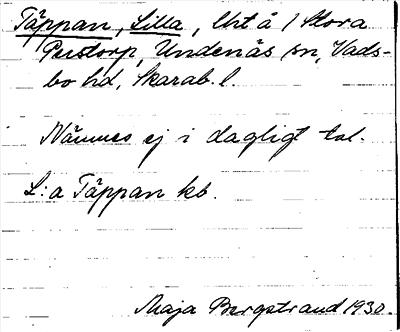 Täppan, Lilla, lht å / Stora
Perstorp, Undenäs sn, Vads-
bo hd, Skarab. l.
Nämnes ej i dagligt tal.
L:a Täppan kb.
Maja Bergstrand 1930.